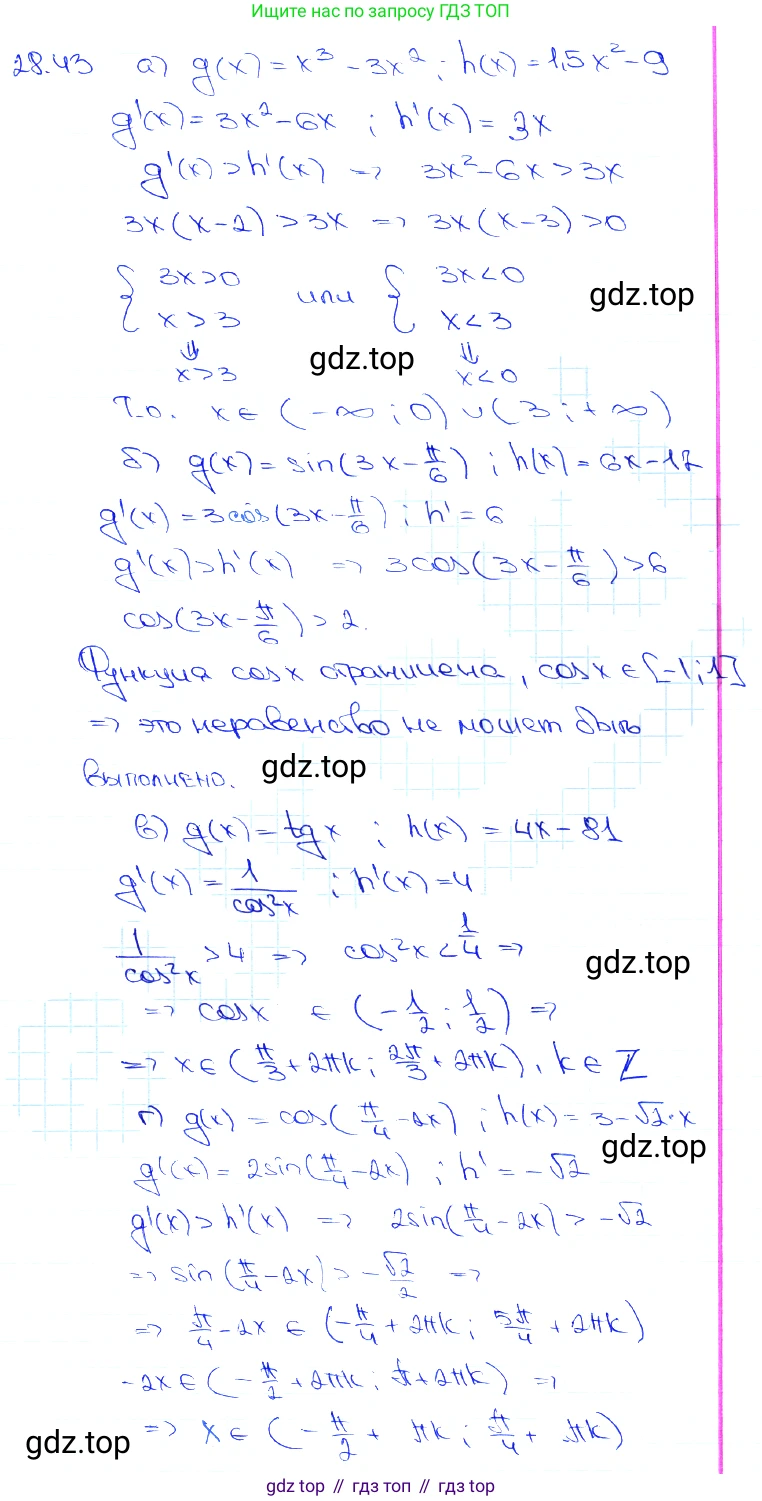 Ищите нас по запросу ГДЗ ТОП
28.43 а) g(x) = x³ - 3x² ; h(x) = 1,5x² - 9
g'(x) = 3x² - 6x ; h'(x) = 3x
g'(x) > h'(x) => 3x² - 6x > 3x
3x(x-2) > 3x => 3x(x-3) > 0
{ 3x > 0 или { 3x < 0
x > 3 x < 3
gdz.top
⇓ ⇓
gdz.top
x > 3 x < 0
Т.о. x ∈ (-∞; 0) ∪ (3; +∞)
б) g(x) = sin(3x - π/6) ; h(x) = 6x - 12
g'(x) = 3cos(3x - π/6) ; h' = 6
g'(x) > h'(x) => 3cos(3x - π/6) > 6
cos(3x - π/6) > 2.
Функция cos x ограничена, cos x ∈ [-1; 1]
=> это неравенство не может быть
выполнено.
gdz.top
в) g(x) = tg x ; h(x) = 4x - 81
g'(x) = 1/cos²x ; h'(x) = 4
1/cos²x > 4 => cos²x < 1/4 =>
gdz.top
=> cos x ∈ (-1/2; 1/2) =>
=> x ∈ (π/3 + 2πk; 2π/3 + 2πk), k ∈ Z
г) g(x) = cos(π/4 - 2x) ; h(x) = 3 - √2·x
gdz.top
g'(x) = 2sin(π/4 - 2x) ; h' = -√2
g'(x) > h'(x) => 2sin(π/4 - 2x) > -√2
=> sin(π/4 - 2x) > -√2/2 =>
=> π/4 - 2x ∈ (-π/4 + 2πk; 5π/4 + 2πk)
-2x ∈ (-π/2 + 2πk; π + 2πk) =>
=> x ∈ (-π/2 + πk; π/4 + πk)
gdz.top
gdz top // гдз топ // gdz top